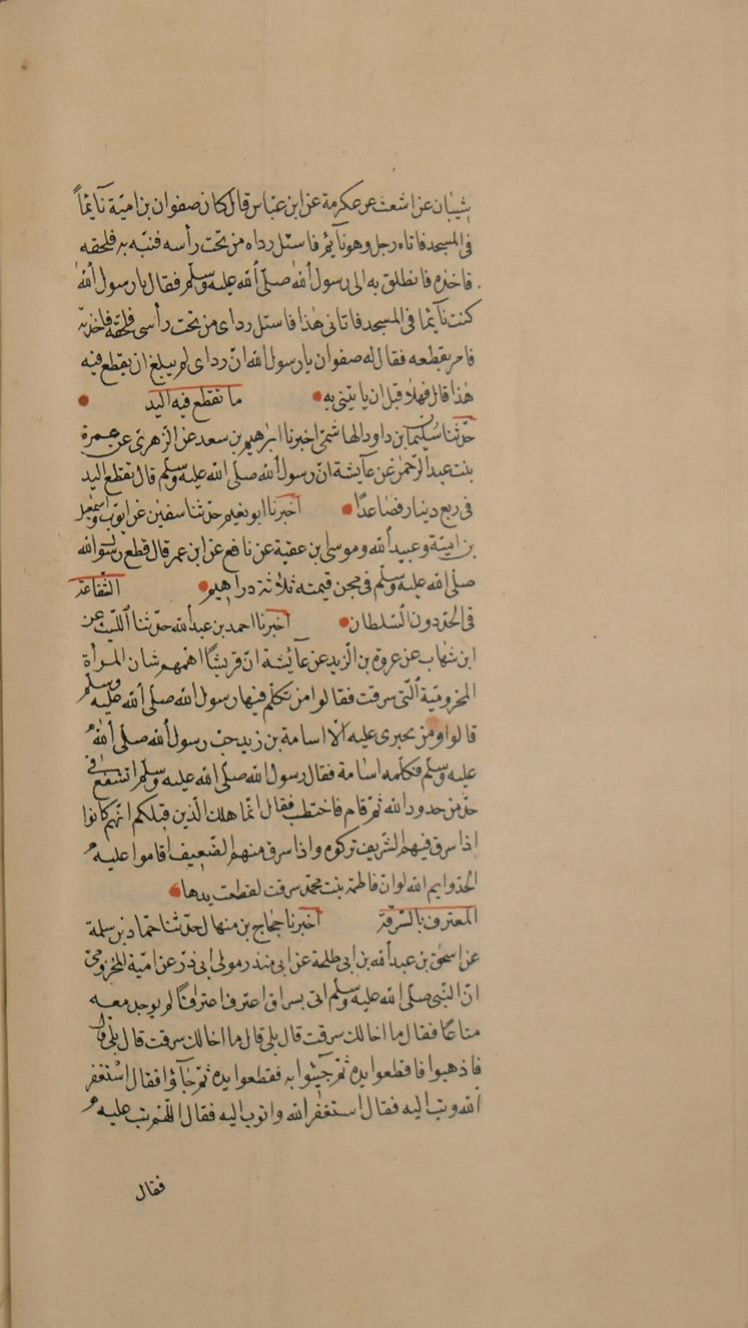 شيبان عن اشعث عن عكرمة عن ابن عباس قال كان صفوان بن اميّة نآيمًا
فى المسجد فاتاه رجل وهو نآيم فاستل رداه من تحت رأسه فنبّه به فلحقه
فاخذه فانطلق به الى رسول الله صلّى الله عليه وسلّم فقال يا رسول الله
كنت نآيمًا فى المسجد فاتانى هذا فاستل رداى من تحت رأسى فلحقه فاخذته
فامر بقطعه فقال له صفوان يا رسول الله انّ رداى لم يبلغ ان يقطع فيه
هذا قال فهلا قبل ان ياتينى به ما تقطع فيه اليد
حدّثنا سليمان بن داود الهاشمى اخبرنا ابرهيم بن سعد عن الزهرى عن عمرة
بنت عبد الرّحمن عن عآيشة انّ رسول الله صلى الله عليه وسلّم قال تقطع اليد
فى ربع دينار فصاعدًا اخبرنا ابو نعيم حدّثنا سفين عن ايّوب واسمعيل
بن اميّة وعبيد الله وموسى ابن عقبة عن نافع عن ابن عمر قال قطع رسول الله
صلى الله عليه وسلّم فى مجن قيمته ثلاثة دراهيم الشّفاعة
فى الحدّ دون السّلطان اخبرنا احمد بن عبد الله حدّثنا اللّيث عن
ابن شهاب عن عروة بن الزبير عن عآيشة انّ قريشًا اهمّهم شان المرأة
المخزوميّة الّتى سرقت فقالوا من يكلّم فيها رسول الله صلى الله عليه وسلّم
قالوا ومن يجترى عليه الّا اسامة بن زيد حبّ رسول الله صلى الله
عليه وسلّم فكلّمه اسامة فقال رسول الله صلّى الله عليه وسلّم اتشفع فى
حدّ من حدود الله ثمّ قام فاختطب فقال انّما هلك الّذين قبلكم انّهم كانوا
اذا سرق فيهم الشّريف تركوه واذا سرق منهم الضّعيف اقاموا عليه
الحدّ وايم الله لو ان فاطمة بنت محمّد سرقت لقطعت يدها
المعترف بالسّرقة اخبرنا حجاج بن منهال حدّثنا حمّاد بن سلمة
عن اسحق بن عبد الله بن ابى طلحة عن ابى منذر مولى ابى ذرّ عن اميّة المخزومىّ
انّ النّبى صلى الله عليه وسلّم اتى بسراق اعترف اعترافًا لم يوجد معه
متاعًا فقال ما اخالك سرقت قال بلى قال ما اخالك سرقت قال بلى قال
فاذهبوا فاقطعوا يده ثمّ جيئوا به فقطعوا يده ثمّ جآؤا فقال استغفر
الله وتب اليه فقال استغفر الله واتوب اليه فقال اللّهمّ تب عليه
فقال